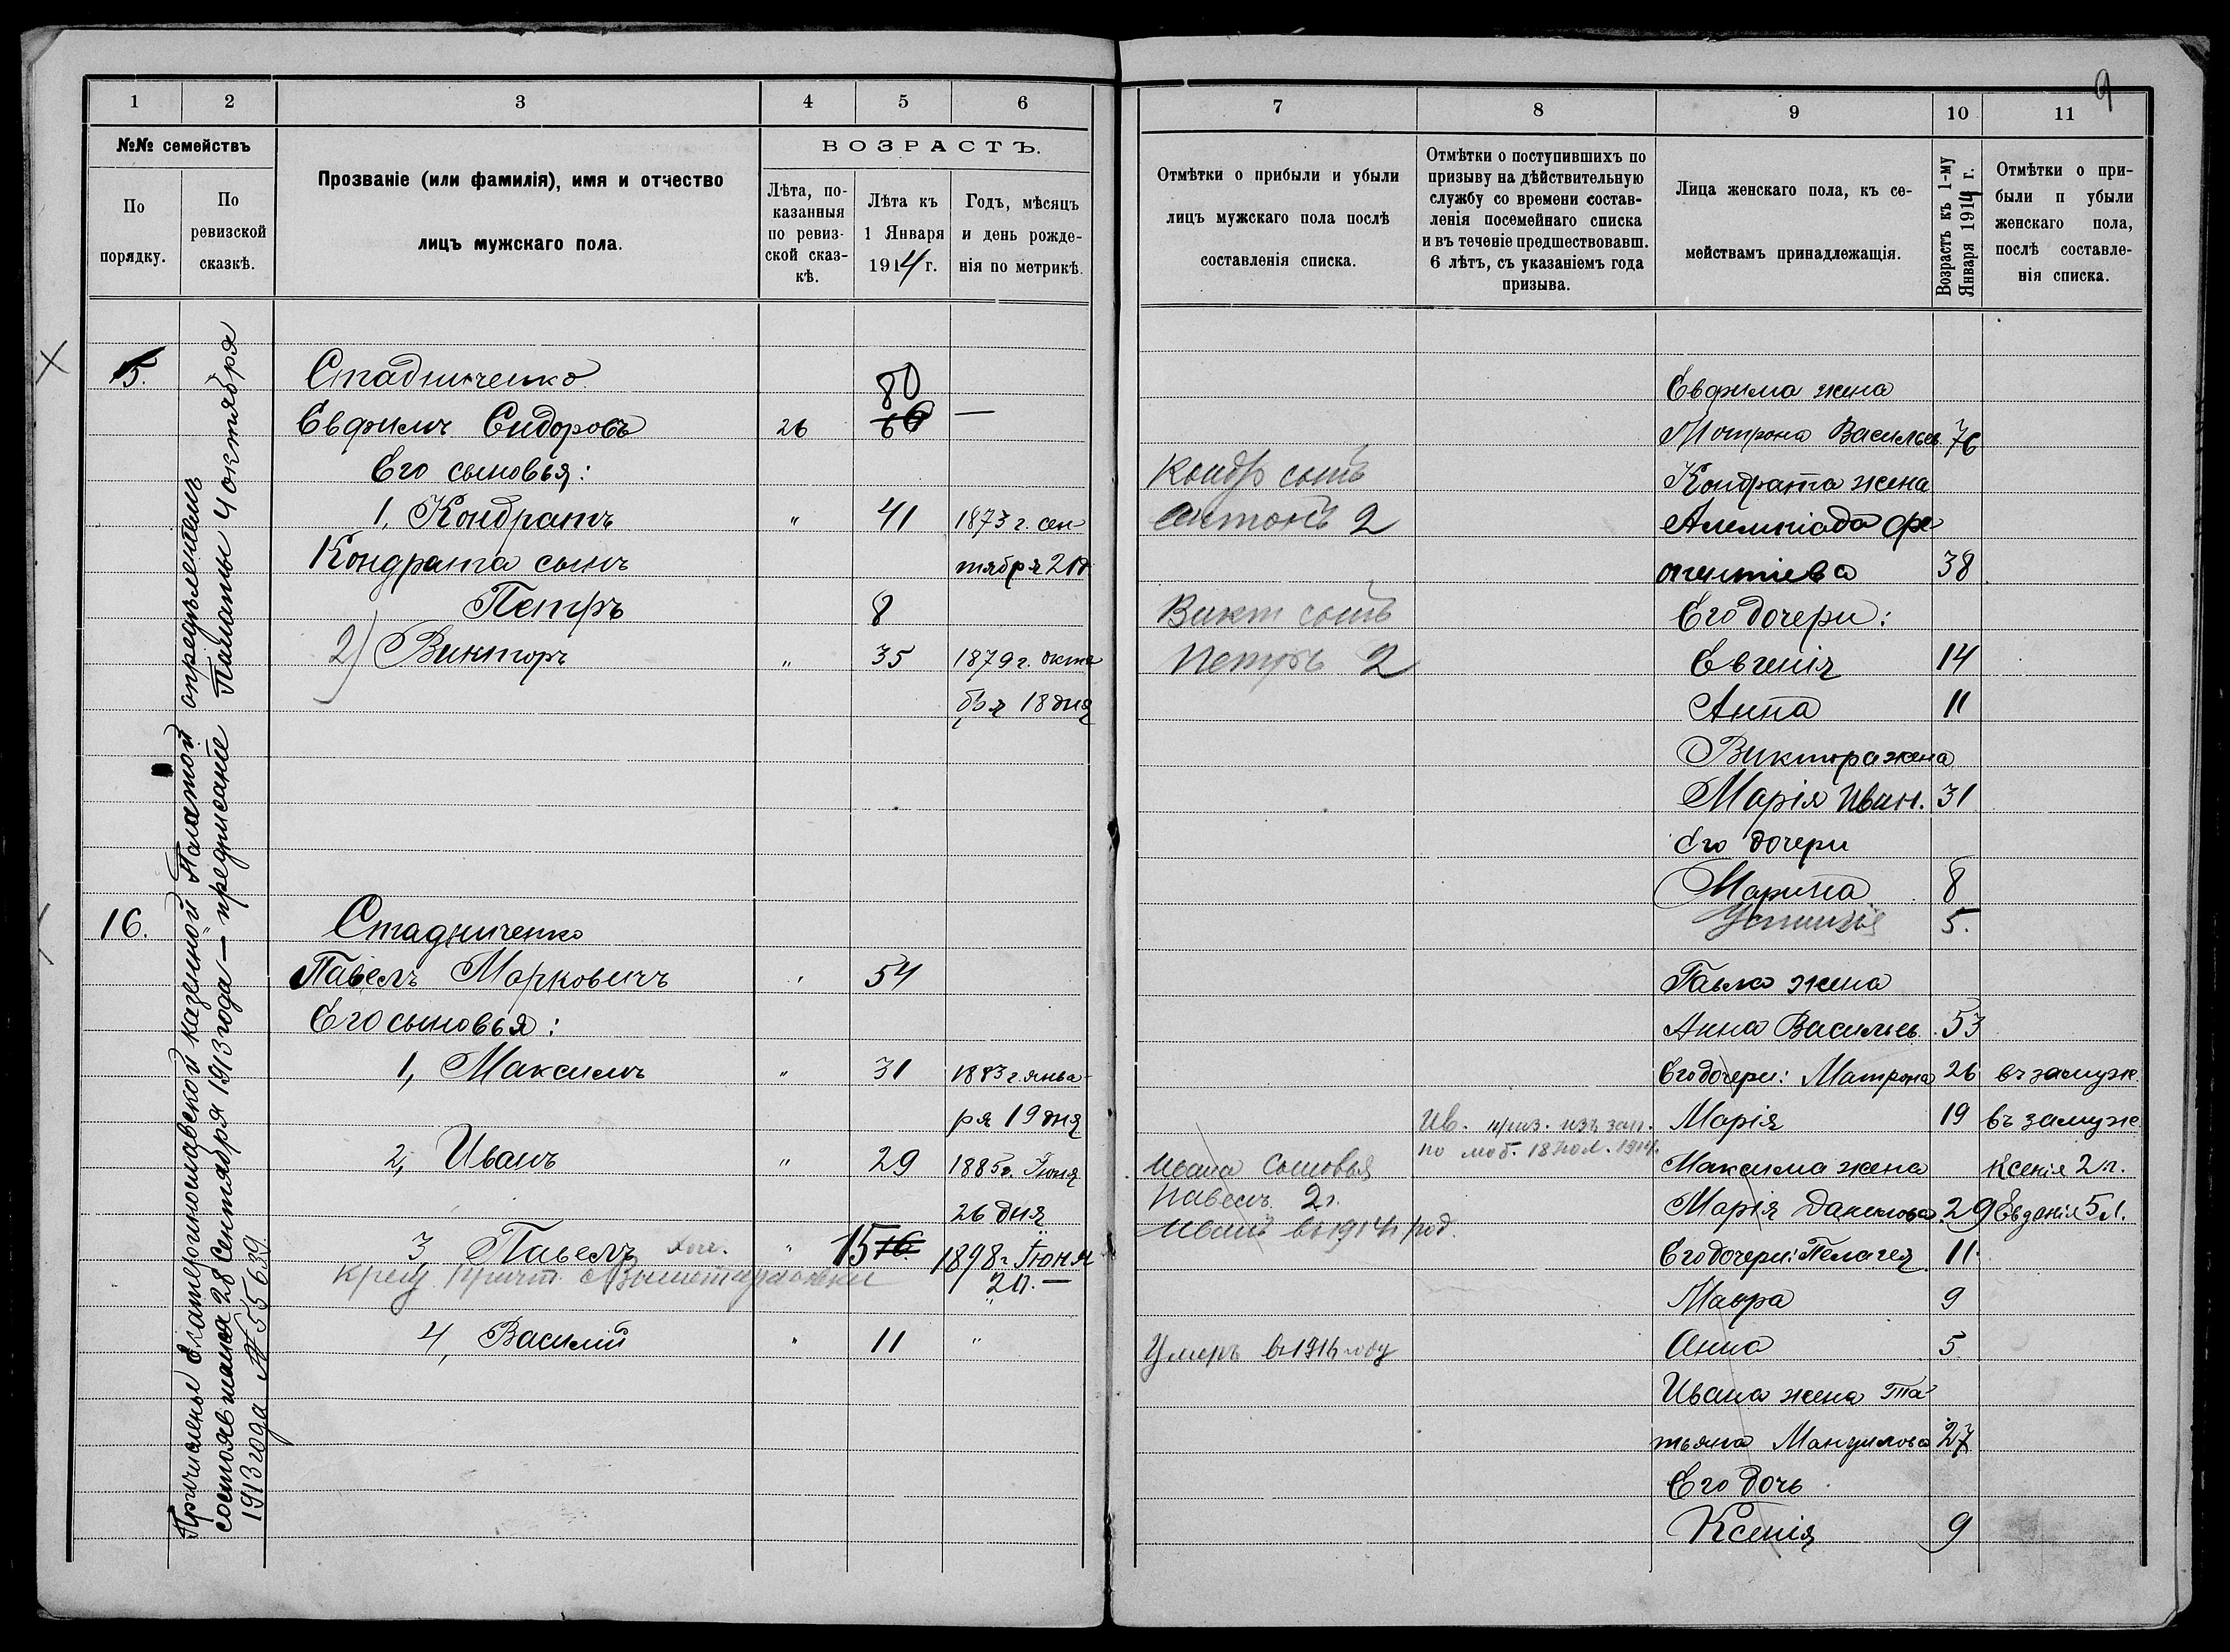 1 2 3 4 5 6
№№ семействъ
По порядку.
По ревизской сказкѣ.
Прозваніе (или фамилія), имя и отчество
лицъ мужскаго пола.
ВОЗРАСТЪ.
Лѣта, по-
казанныя
по ревиз-
ской сказ-
кѣ.
Лѣта къ
1 Января
1914 г.
Годъ, мѣсяцъ
и день рожде-
нія по метрикѣ.
Причислены Екатеринославской казенной Палатой опредѣленіемъ
состоявшимся 28 Сентября 1913 года — предписаніе Палаты 4 октября
1913 года № 55639
15. Стадниченко
80
Евфимъ Сидоровъ 26 69 —
Его сыновья:
1, Кондратъ " 41 1873 г. сен
Кондрата сынъ тября 21 д
Петръ 8
2) Викторъ " 35 1879 г. октя
бря 18 дня
16. Стадниченко
Павелъ Марковичъ " 54
Его сыновья:
1, Максимъ " 31 1883 г. янва-
ря 19 дня
2, Иванъ " 29 1885 г. Іюня
26 дня
3 Павелъ " 15 16 1898 г. Іюня
крещ. причт. 2 д. —
4, Василій " 11 "
9
7 8 9 10 11
Отмѣтки о прибыли и убыли
лицъ мужскаго пола послѣ
составленія списка.
Отмѣтки о поступившихъ по
призыву на дѣйствительную
службу со времени состав-
ленія посемейнаго списка
и въ теченіе предшествовавш.
6 лѣтъ, съ указаніемъ года
призыва.
Лица женскаго пола, къ се-
мействамъ принадлежащія.
Возрастъ къ 1-му
Января 1914 г.
Отмѣтки о при-
были п убыли
женскаго пола,
послѣ составле-
нія списка.
Евфима жена
Мотрона Васильев. 76
Кондр сынъ Кондрата жена
Антонъ 2 Алемпіада Фе
38
Викт сынъ Его дочери:
Петръ 2 Евгенія 14
Анна 11
Виктора жена
Марія Иван. 31
Его дочери
Марина 8
Устинія 5.
Павла жена
Анна Васильев. 53
Его дочери: Матрона 26 въ замуж.
Ив. приз. изъ зап. Марія 19 въ замуж.
по моб. 18 юл. 1914.
Ивана сыновья Максима жена Ксенія 2 л.
Павелъ 2 г. Марія Данилова 29 Евдокія 5 л.
Иванъ въ 1914 г род.
Его дочери: Пелагея 11
Мавра 9
Умеръ в 1916 году Анна 5
Ивана жена Та
тьяна Мануилова 27
Его дочь
Ксенія 9